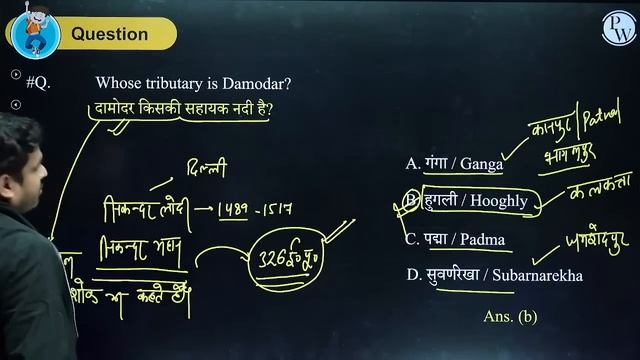 Question
PW
#Q. Whose tributary is Damodar?
दामोदर किसकी सहायक नदी है?
दिल्ली
सिकन्दर लोदी → 1489 - 1517
सिकन्दर महान
326 ई० पू०
कहते हैं।
A. गंगा / Ganga
कानपुर / Patna
भागलपुर
B. हुगली / Hooghly
कलकत्ता
C. पद्मा / Padma
जमशेदपुर
D. सुवर्णरेखा / Subarnarekha
Ans. (b)